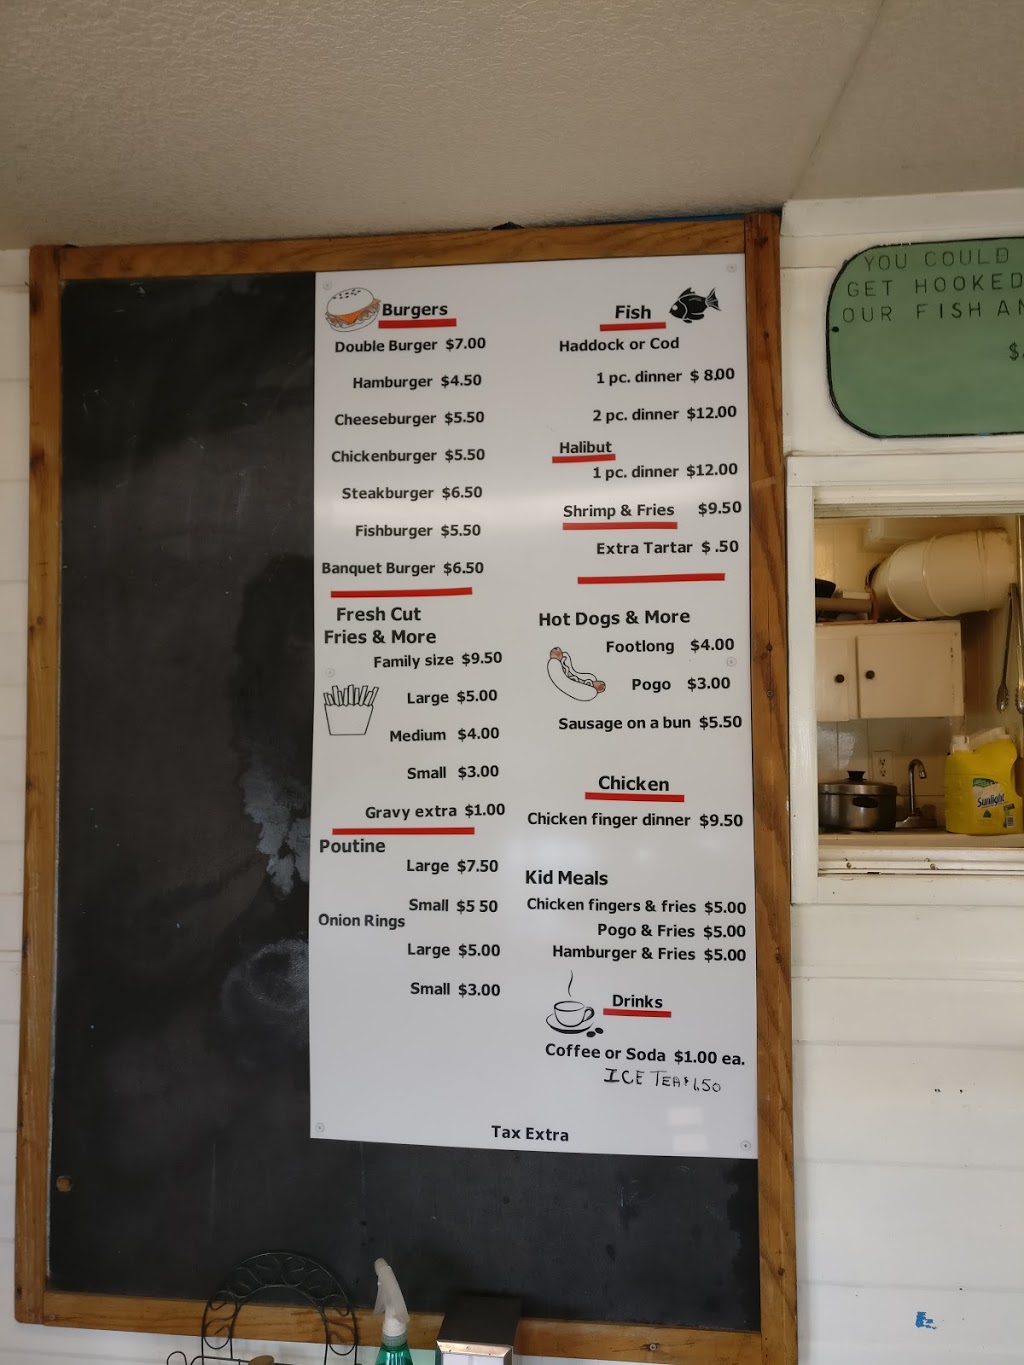 Burgers
Double Burger $7.00
Hamburger $4.50
Cheeseburger $5.50
Chickenburger $5.50
Steakburger $6.50
Fishburger $5.50
Banquet Burger $6.50
Fresh Cut
Fries & More
Family size $9.50
Large $5.00
Medium $4.00
Small $3.00
Gravy extra $1.00
Poutine
Large $7.50
Small $5 50
Onion Rings
Large $5.00
Small $3.00
Fish
Haddock or Cod
1 pc. dinner $ 8.00
2 pc. dinner $12.00
Halibut
1 pc. dinner $12.00
Shrimp & Fries $9.50
Extra Tartar $ .50
Hot Dogs & More
Footlong $4.00
Pogo $3.00
Sausage on a bun $5.50
Chicken
Chicken finger dinner $9.50
Kid Meals
Chicken fingers & fries $5.00
Pogo & Fries $5.00
Hamburger & Fries $5.00
Drinks
Coffee or Soda $1.00 ea.
ICE TEA $1.50
Tax Extra
YOU COULD
GET HOOKED
OUR FISH
Sunlight